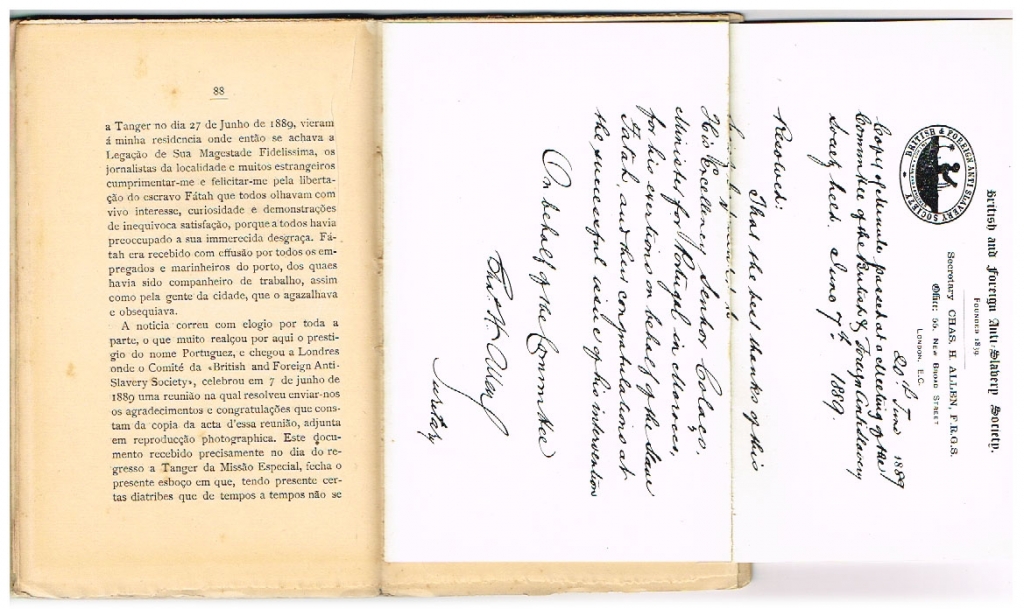 88
a Tanger no dia 27 de Junho de 1889, vieram
á minha residencia onde então se achava a
Legação de Sua Magestade Fidelissima, os
jornalistas da localidade e muitos estrangeiros
cumprimentar-me e felicitar-me pela liberta-
ção do escravo Fátah que todos olhavam com
vivo interesse, curiosidade e demonstrações
de inequivoca satisfação, porque a todos havia
preoccupado a sua immerecida desgraça. Fá-
tah era recebido com effusão por todos os em-
pregados e marinheiros do porto, dos quaes
havia sido companheiro de trabalho, assim
como pela gente da cidade, que o agazalhava
e obsequiava.
A noticia correu com elogio por toda a
parte, o que muito realçou por aqui o presti-
gio do nome Portuguez, e chegou a Londres
onde o Comité da «British and Foreign Anti-
Slavery Society», celebrou em 7 de junho de
1889 uma reunião na qual resolveu enviar-nos
os agradecimentos e congratulações que cons-
tam da copia da acta d'essa reunião, adjunta
em reproducção photographica. Este docu-
mento recebido precisamente no dia do re-
gresso a Tanger da Missão Especial, fecha o
presente esboço em que, tendo presente cer-
tas diatribes que de tempos a tempos não se
British and Foreign Anti-Slavery Society.
FOUNDED 1839.
Secretary CHAS. H. ALLEN, F.R.G.S.
Office: 55, NEW BROAD STREET
LONDON, E.C.
BRITISH & FOREIGN ANTI SLAVERY SOCIETY
20th June 1889
Copy of Minute passed at a Meeting of the
Committee of the British & Foreign Antislavery
Society held June 7th 1889.
Resolved:
That the best thanks of this
His Excellency Senhor Colaço,
Minister for Portugal in Morocco,
for his exertions on behalf of the slave
Fatah, and their congratulations at
the successful issue of his intervention
On behalf of the Committee
Chas. H. Allen
Secretary